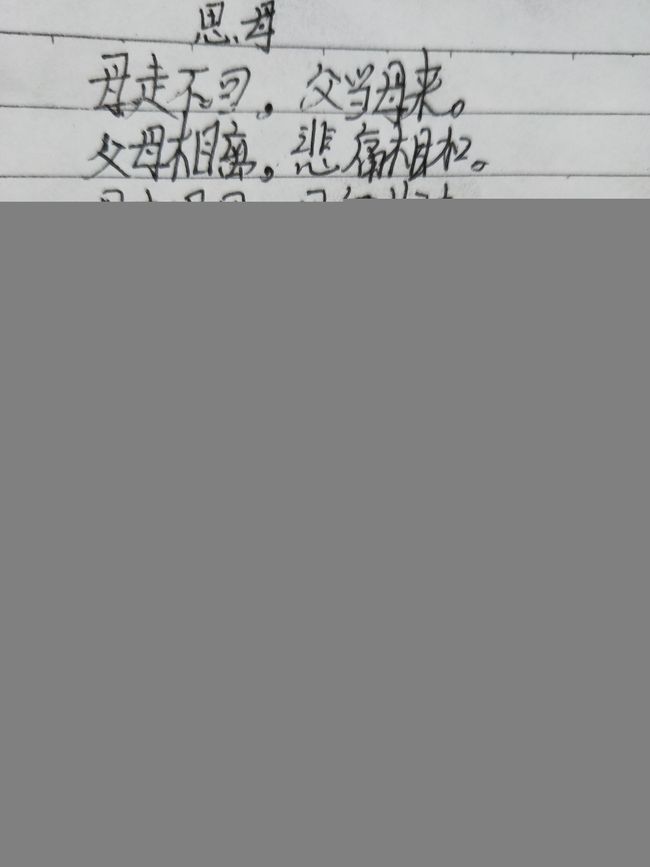 思母
母走不回。父当母来。
父母相离。悲痛相和。